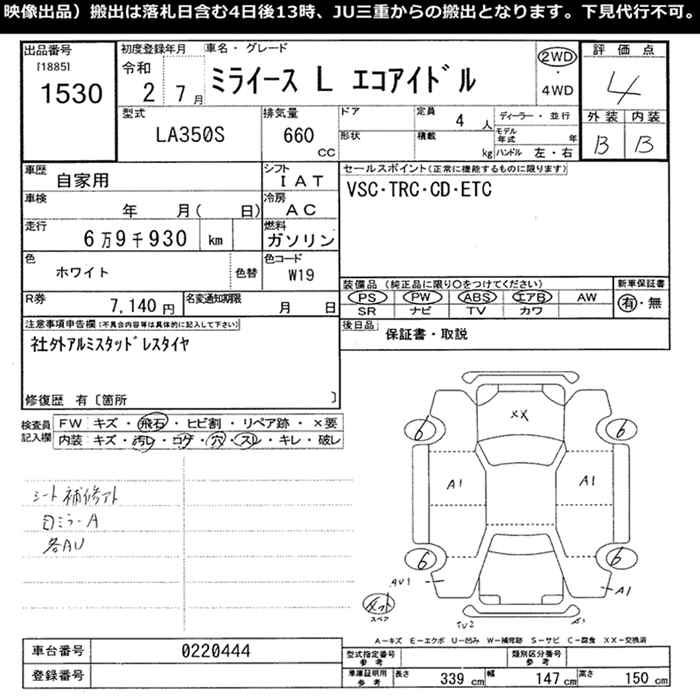 映像出品）搬出は落札日含む4日後13時、JU三重からの搬出となります。下見代行不可。
出品番号
[1885]
1530
初度登録年月
令和
2 7 月
車名・グレード
ミライース L エコアイドル
2WD
・
4WD
評価点
4
外装 内装
B B
型式
LA350S
排気量
660
cc
ドア
形状
定員
4 人
積載
kg
ディーラー・並行
モデル年式 年
ハンドル 左・右
車歴
自家用
シフト
IAT
車検
年 月( 日)
冷房
AC
走行
6万9千930 km
燃料
ガソリン
色
ホワイト
色替
色コード
W19
R券
7,140 円
名変通知期限
月 日
セールスポイント(正常に機能するものに限ります)
VSC・TRC・CD・ETC
装備品(純正品に限り○をつけてください)
PS PW ABS エアB AW
SR ナビ TV カワ
新車保証書
有・無
後日品
保証書・取説
注意事項申告欄(不具合内容等は具体的に記入して下さい)
社外アルミスタッドレスタイヤ
修復歴 有〔箇所 〕
検査員
記入欄
FW キズ・飛石・ヒビ割・リペア跡・×要
内装 キズ・汚レ・コゲ・穴・スレ・キレ・破レ
シート補修アト
ミラーA
各AU
XX
6 6
A1 A1
6 6
AU1
A1
スペア
TU2
A1
A-キズ E-エクボ U-凹み W-補修跡 S-サビ C-腐食 XX-交換済
車台番号
0220444
登録番号
型式指定番号
参考
類別区分番号
参考
車庫証明用
参考
長さ 339 cm 幅 147 cm 高さ 150 cm